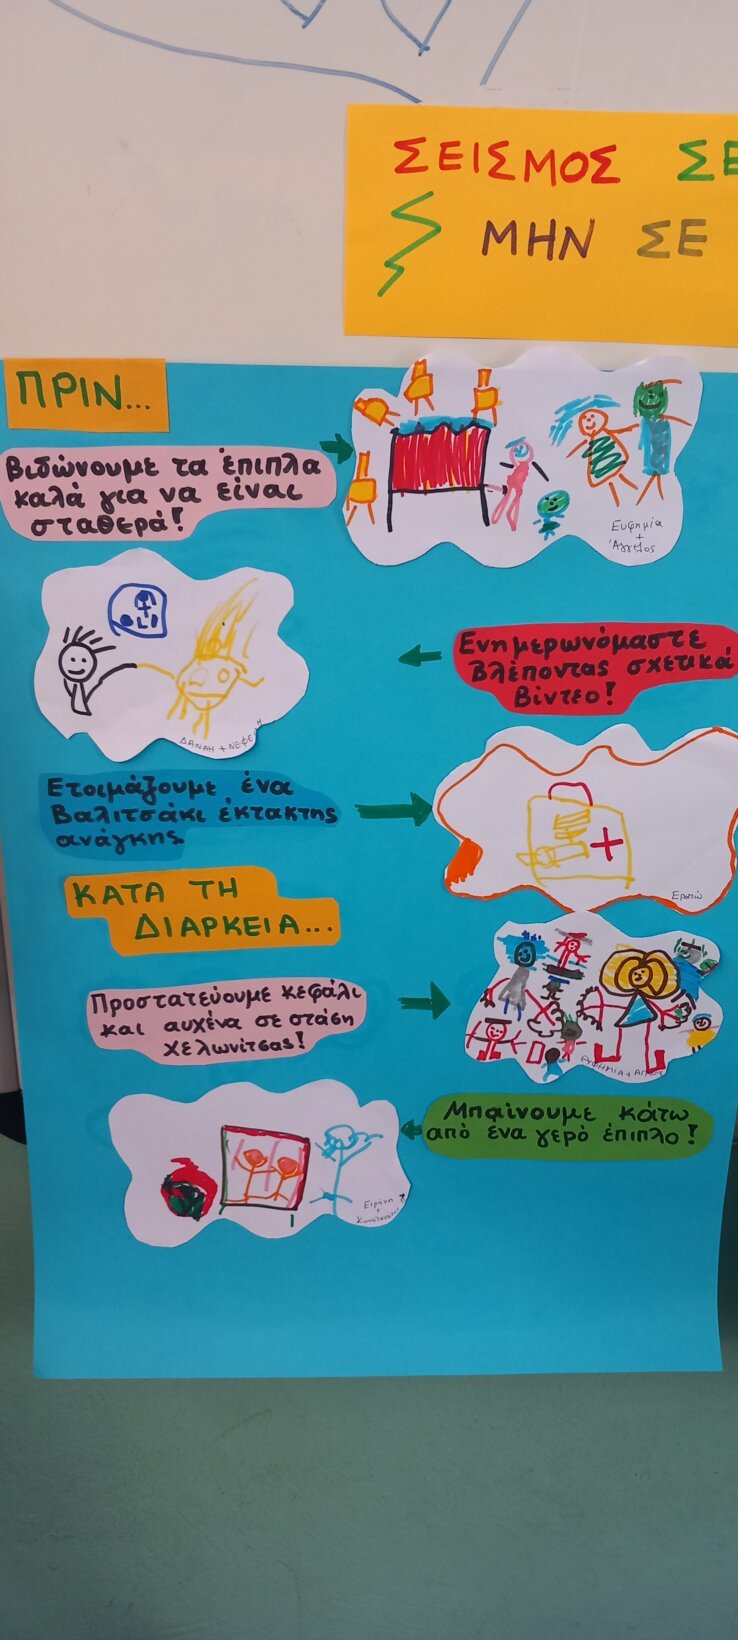 ΣΕΙΣΜΟΣ ΣΕ
ΜΗΝ ΣΕ
ΠΡΙΝ...
Βιδώνουμε τα έπιπλα
καλά για να είναι
σταθερά!
Ευφημία
+
Άγγελος
Ενημερωνόμαστε
βλέποντας σχετικά
βίντεο!
ΔΑΝΑΗ + ΝΕΦΕΛΗ
Ετοιμάζουμε ένα
βαλιτσάκι έκτακτης
ανάγκης
Ερατώ
ΚΑΤΑ ΤΗ
ΔΙΑΡΚΕΙΑ...
Προστατεύουμε κεφάλι
και αυχένα σε στάση
χελωνίτσας!
ΕΥΦΗΜΙΑ +
Μπαίνουμε κάτω
από ένα γερό έπιπλο!
Ειρήνη
+